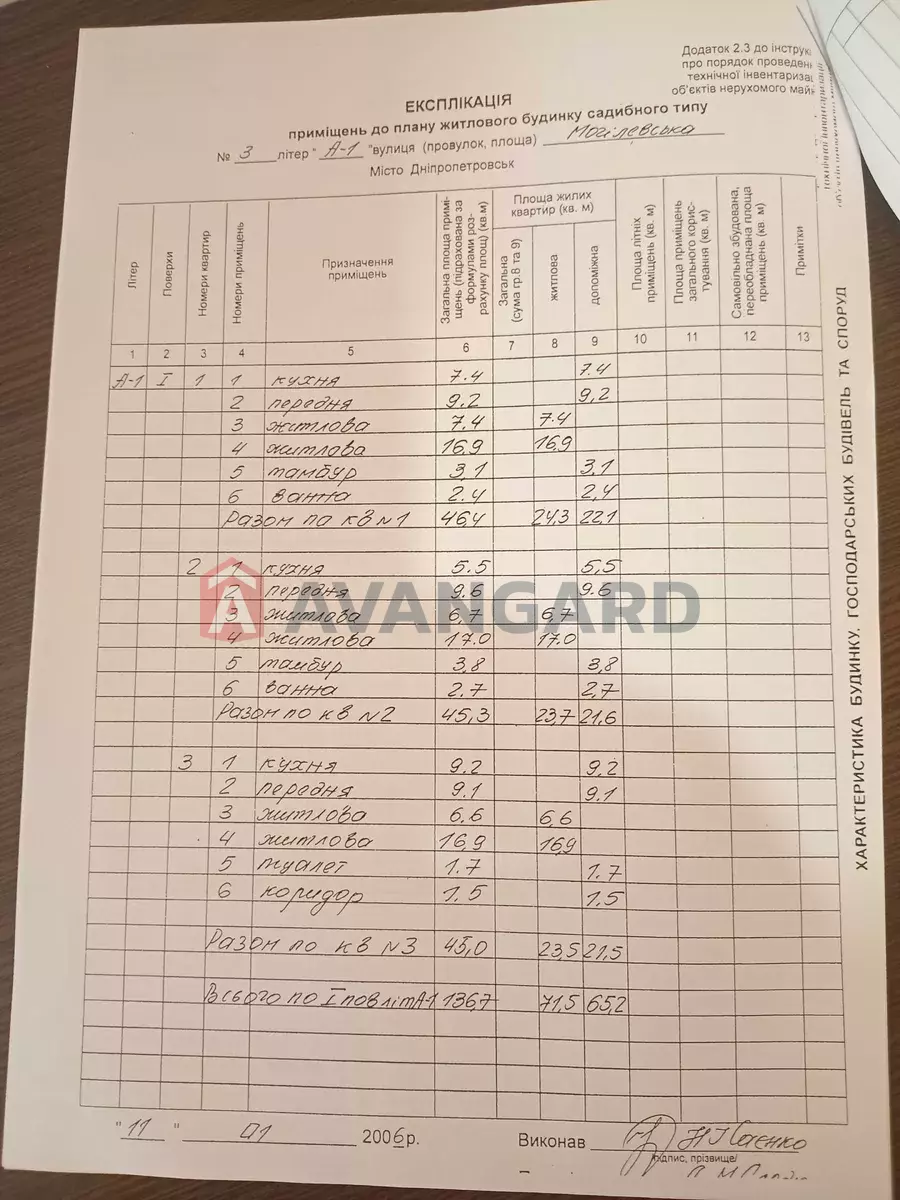 Додаток 2.3 до інструк
про порядок проведен
технічної інвентариза
об'єктів нерухомого май
ЕКСПЛІКАЦІЯ
приміщень до плану житлового будинку садибного типу
№ 3 літер " А-1 "вулиця (провулок, площа) Могілевська
Місто Дніпропетровськ
Літер
Поверхи
Номери квартир
Номери приміщень
Призначення приміщень
Загальна площа примі-
щень (підрахована за
формулами роз-
рахунку площ) (кв.м)
Площа жилих
квартир (кв. м)
Загальна
(сума гр.8 та 9)
житлова
допоміжна
Площа літніх
приміщень (кв. м)
Площа приміщень
загального корис-
тування (кв. м)
Самовільно збудована,
переобладнана площа
приміщень (кв. м)
Примітки
1 2 3 4 5 6 7 8 9 10 11 12 13
А-1 I 1 1 кухня 7.4 7.4
2 передня 9.2 9,2
3 житлова 7.4 7.4
4 житлова 16,9 16,9
5 тамбур 3,1 3,1
6 ванна 2.4 2,4
Разом по кв №1 46,4 24,3 22,1
2 1 кухня 5.5 5,5
2 передня 9.6 9.6
3 житлова 6,7 6,7
4 житлова 17.0 17.0
5 тамбур 3,8 3,8
6 ванна 2.7 2,7
Разом по кв №2 45,3 23,7 21,6
3 1 кухня 9.2 9.2
2 передня 9.1 9.1
3 житлова 6,6 6,6
4 житлова 16,9 16,9
5 туалет 1.7 1.7
6 коридор 1.5 1.5
Разом по кв №3 45,0 23,5 21,5
Всього по I пов літ А1 136,7 71,5 65,2
AVANGARD
ХАРАКТЕРИСТИКА БУДИНКУ, ГОСПОДАРСЬКИХ БУДІВЕЛЬ ТА СПОРУД
" 11 " 01 2006р. Виконав Н.І Саєнко
підпис, прізвище/